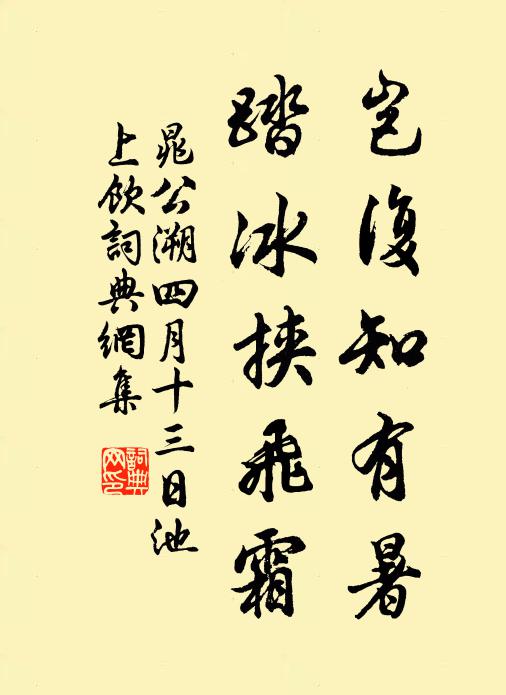 豈復知有暑
踏冰挾飛霜
晁公溯四月十三日池
上飲詞典網集
詞典
网印